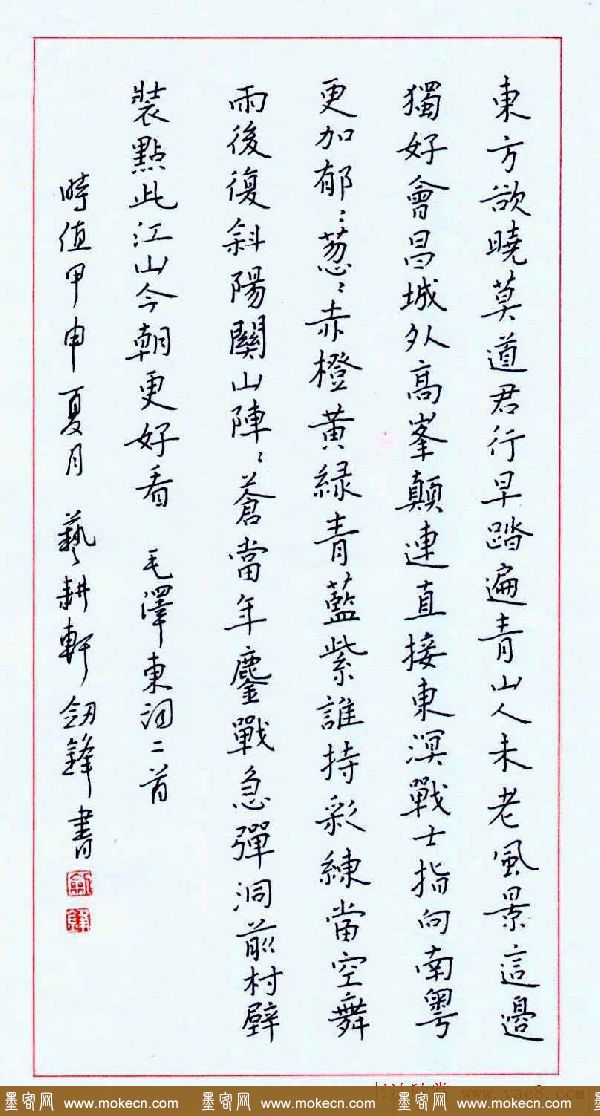 東方欲曉莫道君行早踏遍青山人未老風景這邊
獨好會昌城外高峯顛連直接東溟戰士指向南粵
更加郁〻葱〻赤橙黄緑青藍紫誰持彩練當空舞
雨後復斜陽關山陣〻蒼當年鏖戰急彈洞前村壁
裝點此江山今朝更好看 毛澤東词二首
時值甲申夏月 藝耕軒 劒鋒書
www.yac8.com
www.mokecn.com 墨客网 www.mokecn.com 墨客网 www.mokecn.com